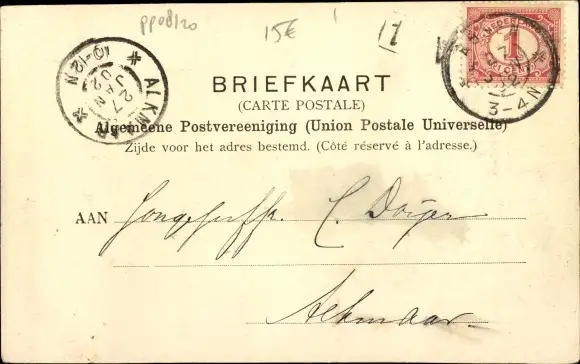 ppo8120
15€
17
ALKMAAR
10-12N
27
JAN
02
NEDERLAND
1
3-4N
BRIEFKAART
(CARTE POSTALE)
Algemeene Postvereeniging (Union Postale Universelle)
Zijde voor het adres bestemd. (Côté réservé à l'adresse.)
AAN Jongejuffr. C. Doijer
Alkmaar.